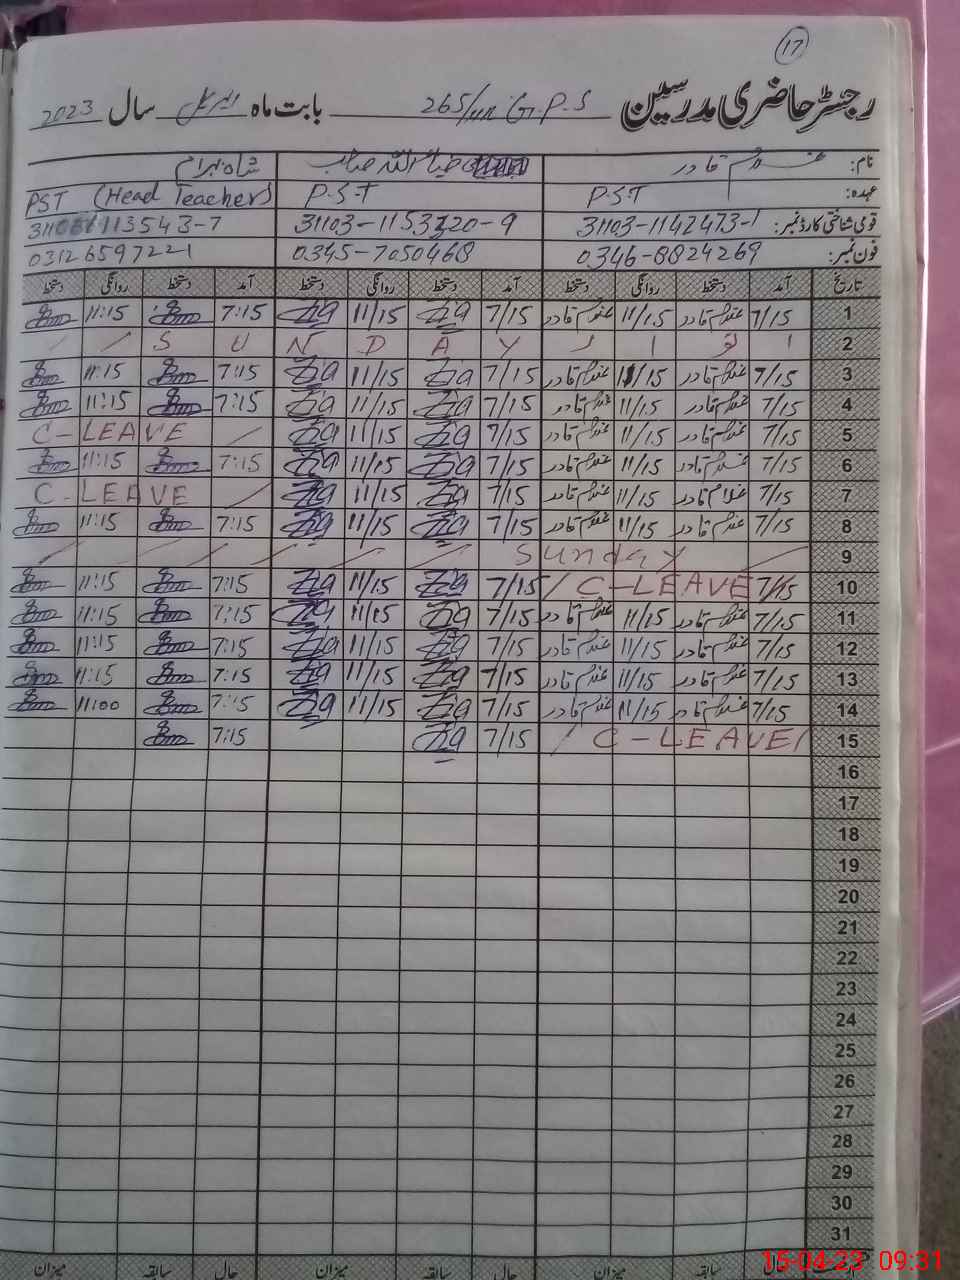 17
رجسٹر حاضری مدرسین G.P.S 265/HR بابت ماہ اپریل سال 2023
نام: غلام قادر ضیاء اللہ صاحب شاہ بہرام
عہدہ: P.S.T P-S-T PST (Head Teacher)
قومی شناختی کارڈ نمبر: 31103-1142473-1 31103-1153220-9
فون نمبر: 0346-8824269 0345-7050468 03126597221
تاریخ آمد دستخط روانگی دستخط آمد دستخط روانگی دستخط آمد دستخط روانگی دستخط
1 7/15 غلام قادر 11/15 غلام قادر 7/15 11/15 7:15 11:15
2 اتوار SUNDAY
3 7/15 غلام قادر 11/15 غلام قادر 7/15 11/15 7:15 11:15
4 7/15 غلام قادر 11/15 غلام قادر 7/15 11/15 7:15 11:15
5 7/15 غلام قادر 11/15 غلام قادر 7/15 11/15 C-LEAVE
6 7/15 غلام قادر 11/15 غلام قادر 7/15 11/15 7:15 11:15
7 7/15 غلام قادر 11/15 غلام قادر 7/15 11/15 C-LEAVE
8 7/15 غلام قادر 11/15 غلام قادر 7/15 11/15 7:15 11:15
9 Sunday
10 7/15 C-LEAVE 7/15 11/15 7:15 11:15
11 7/15 غلام قادر 11/15 غلام قادر 7/15 11/15 7:15 11:15
12 7/15 غلام قادر 11/15 غلام قادر 7/15 11/15 7:15 11:15
13 7/15 غلام قادر 11/15 غلام قادر 7/15 11/15 7:15 11:15
14 7/15 غلام قادر 11/15 غلام قادر 7/15 11/15 7:15 11:00
15 C-LEAVE 7/15 7:15
16
17
18
19
20
21
22
23
24
25
26
27
28
29
30
31
حال سابقہ میزان حال سابقہ میزان
15-04-23 09:31